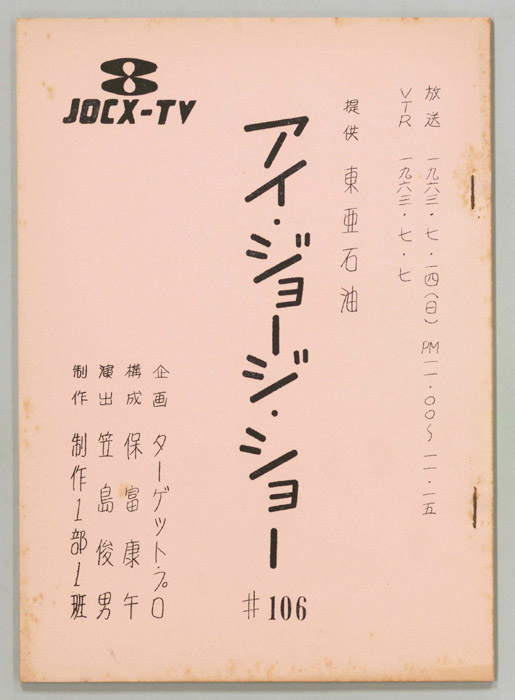 放送 一九六三・七・一四(日) PM一一・〇〇〜一一・一五
VTR 一九六三・七・七
提供 東亜石油
アイ・ジョージ・ショー
#106
JOCX-TV
8
企画 ターゲット・プロ
構成 保富康午
演出 笠島俊男
制作 制作1部1班